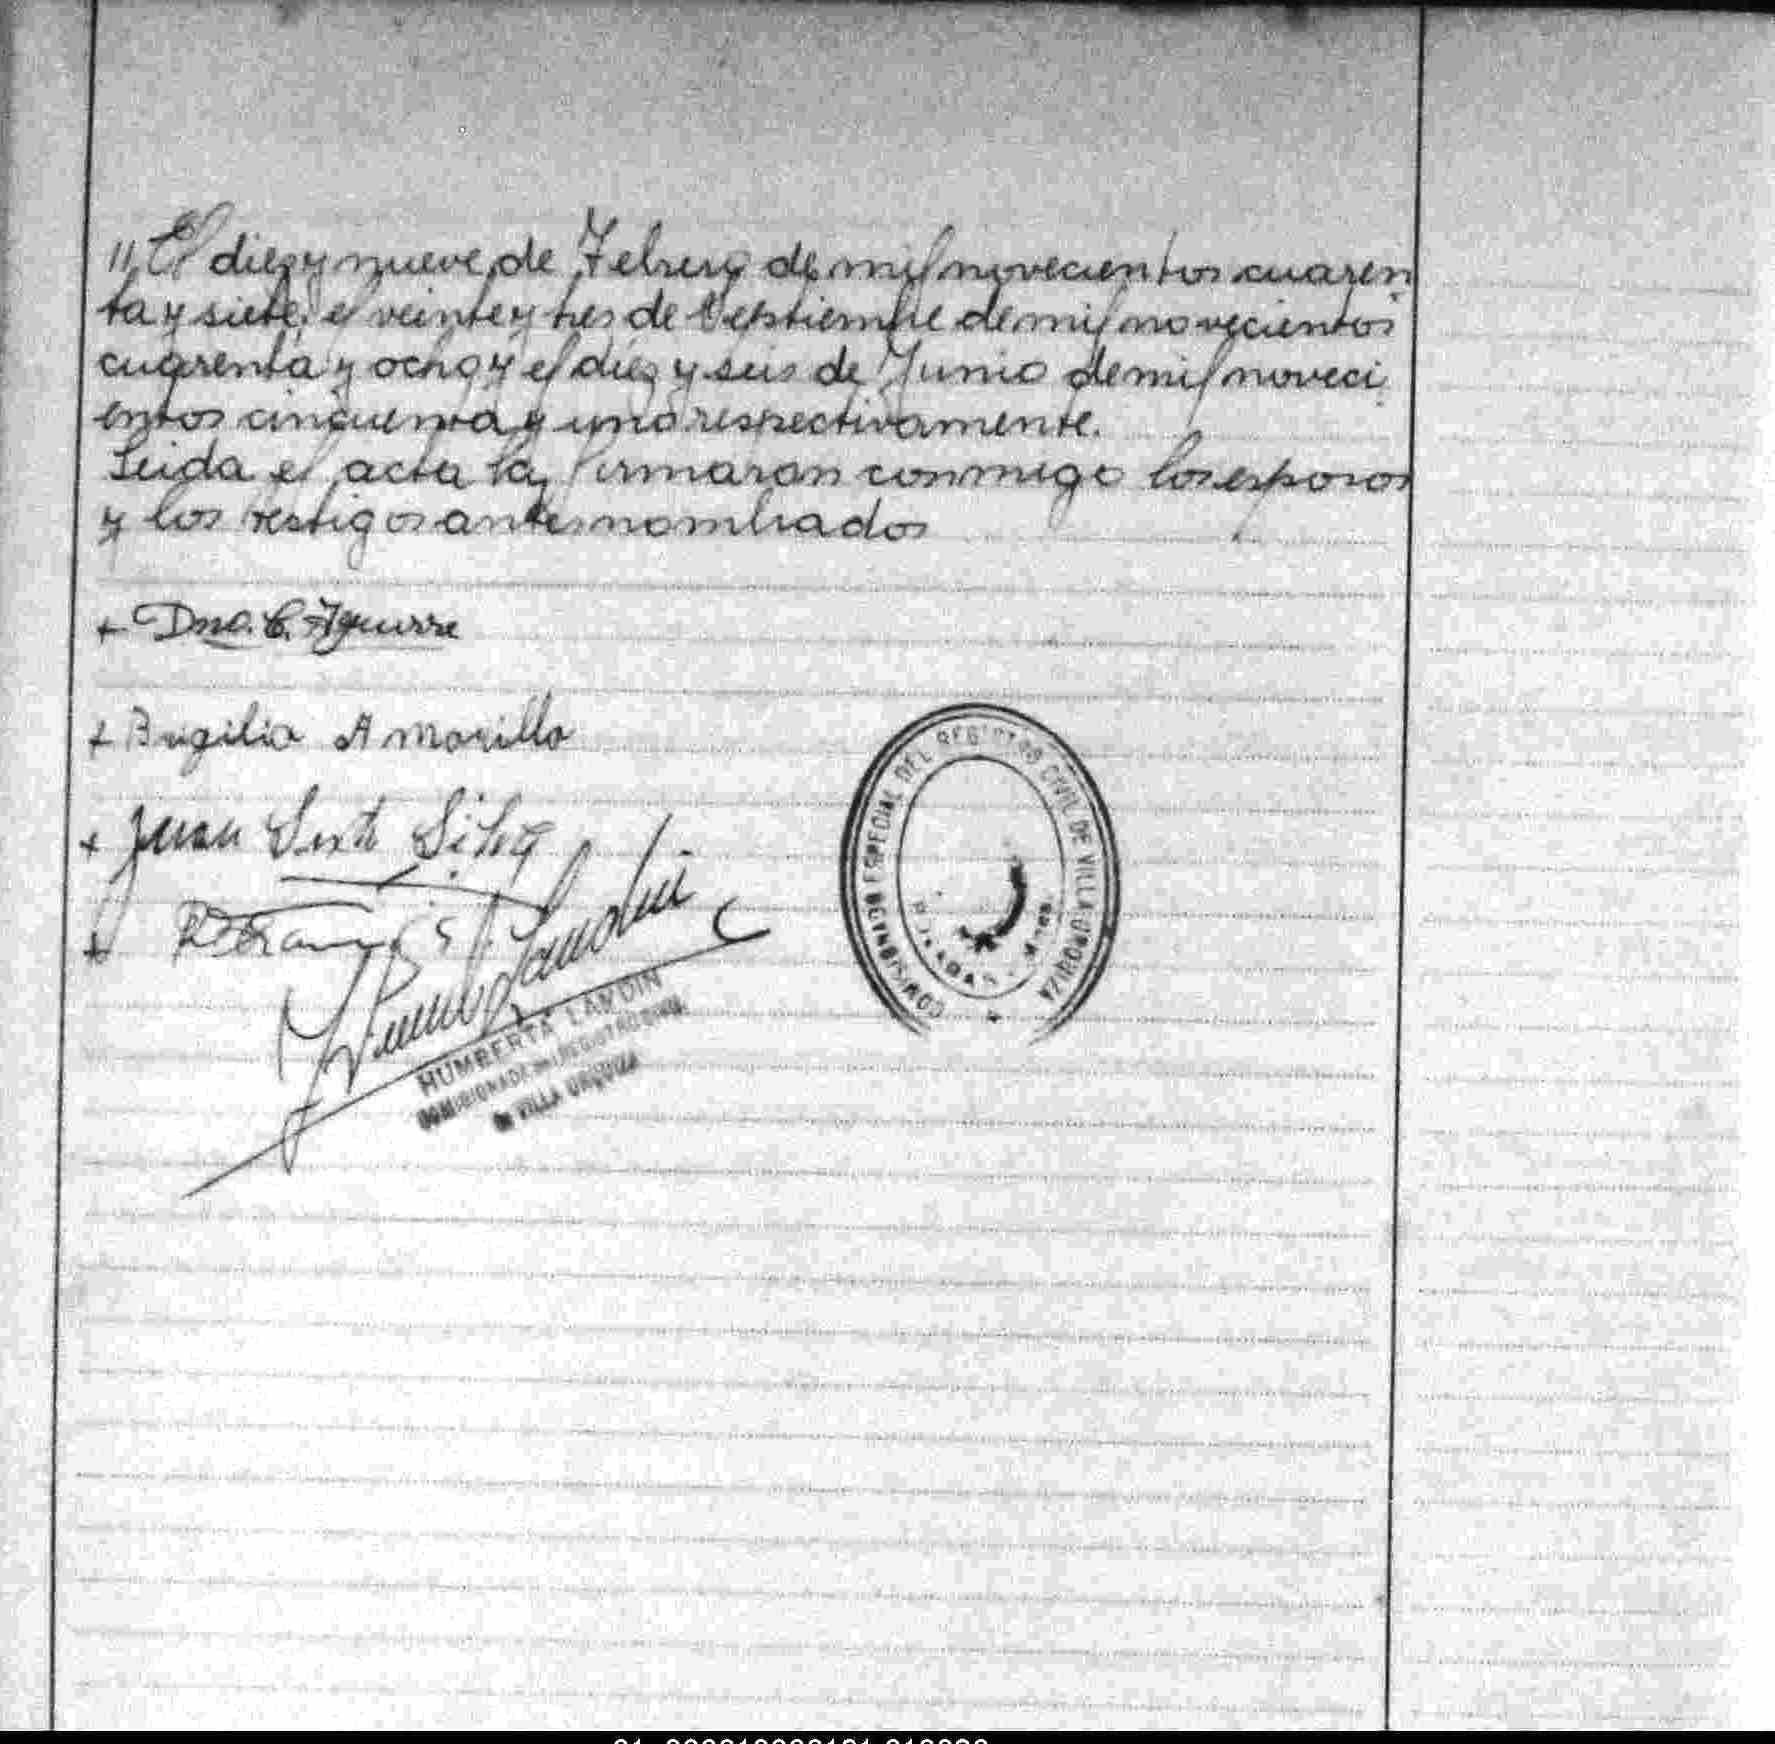 " El diez y nueve de Febrero de mil novecientos cuaren
ta y siete, el veinte y tres de Septiembre de mil novecientos
cuarenta y ocho y el diez y seis de Junio de mil noveci
entos cincuenta y uno respectivamente.
Leida el acta la firmaron conmigo los esposos
y los testigos antes nombrados
+ Dno. C. Aguirre
+ Brigilia A Morillo
+ Juan Sixto Silva
+
HUMBERTA LANDIN
COMISIONADO DEL REGISTRO CIVIL
DE VILLA URQUIZA
COMISIONADO ESPECIAL DEL REGISTRO CIVIL DE VILLA URQUIZA
POSADAS - Mnes